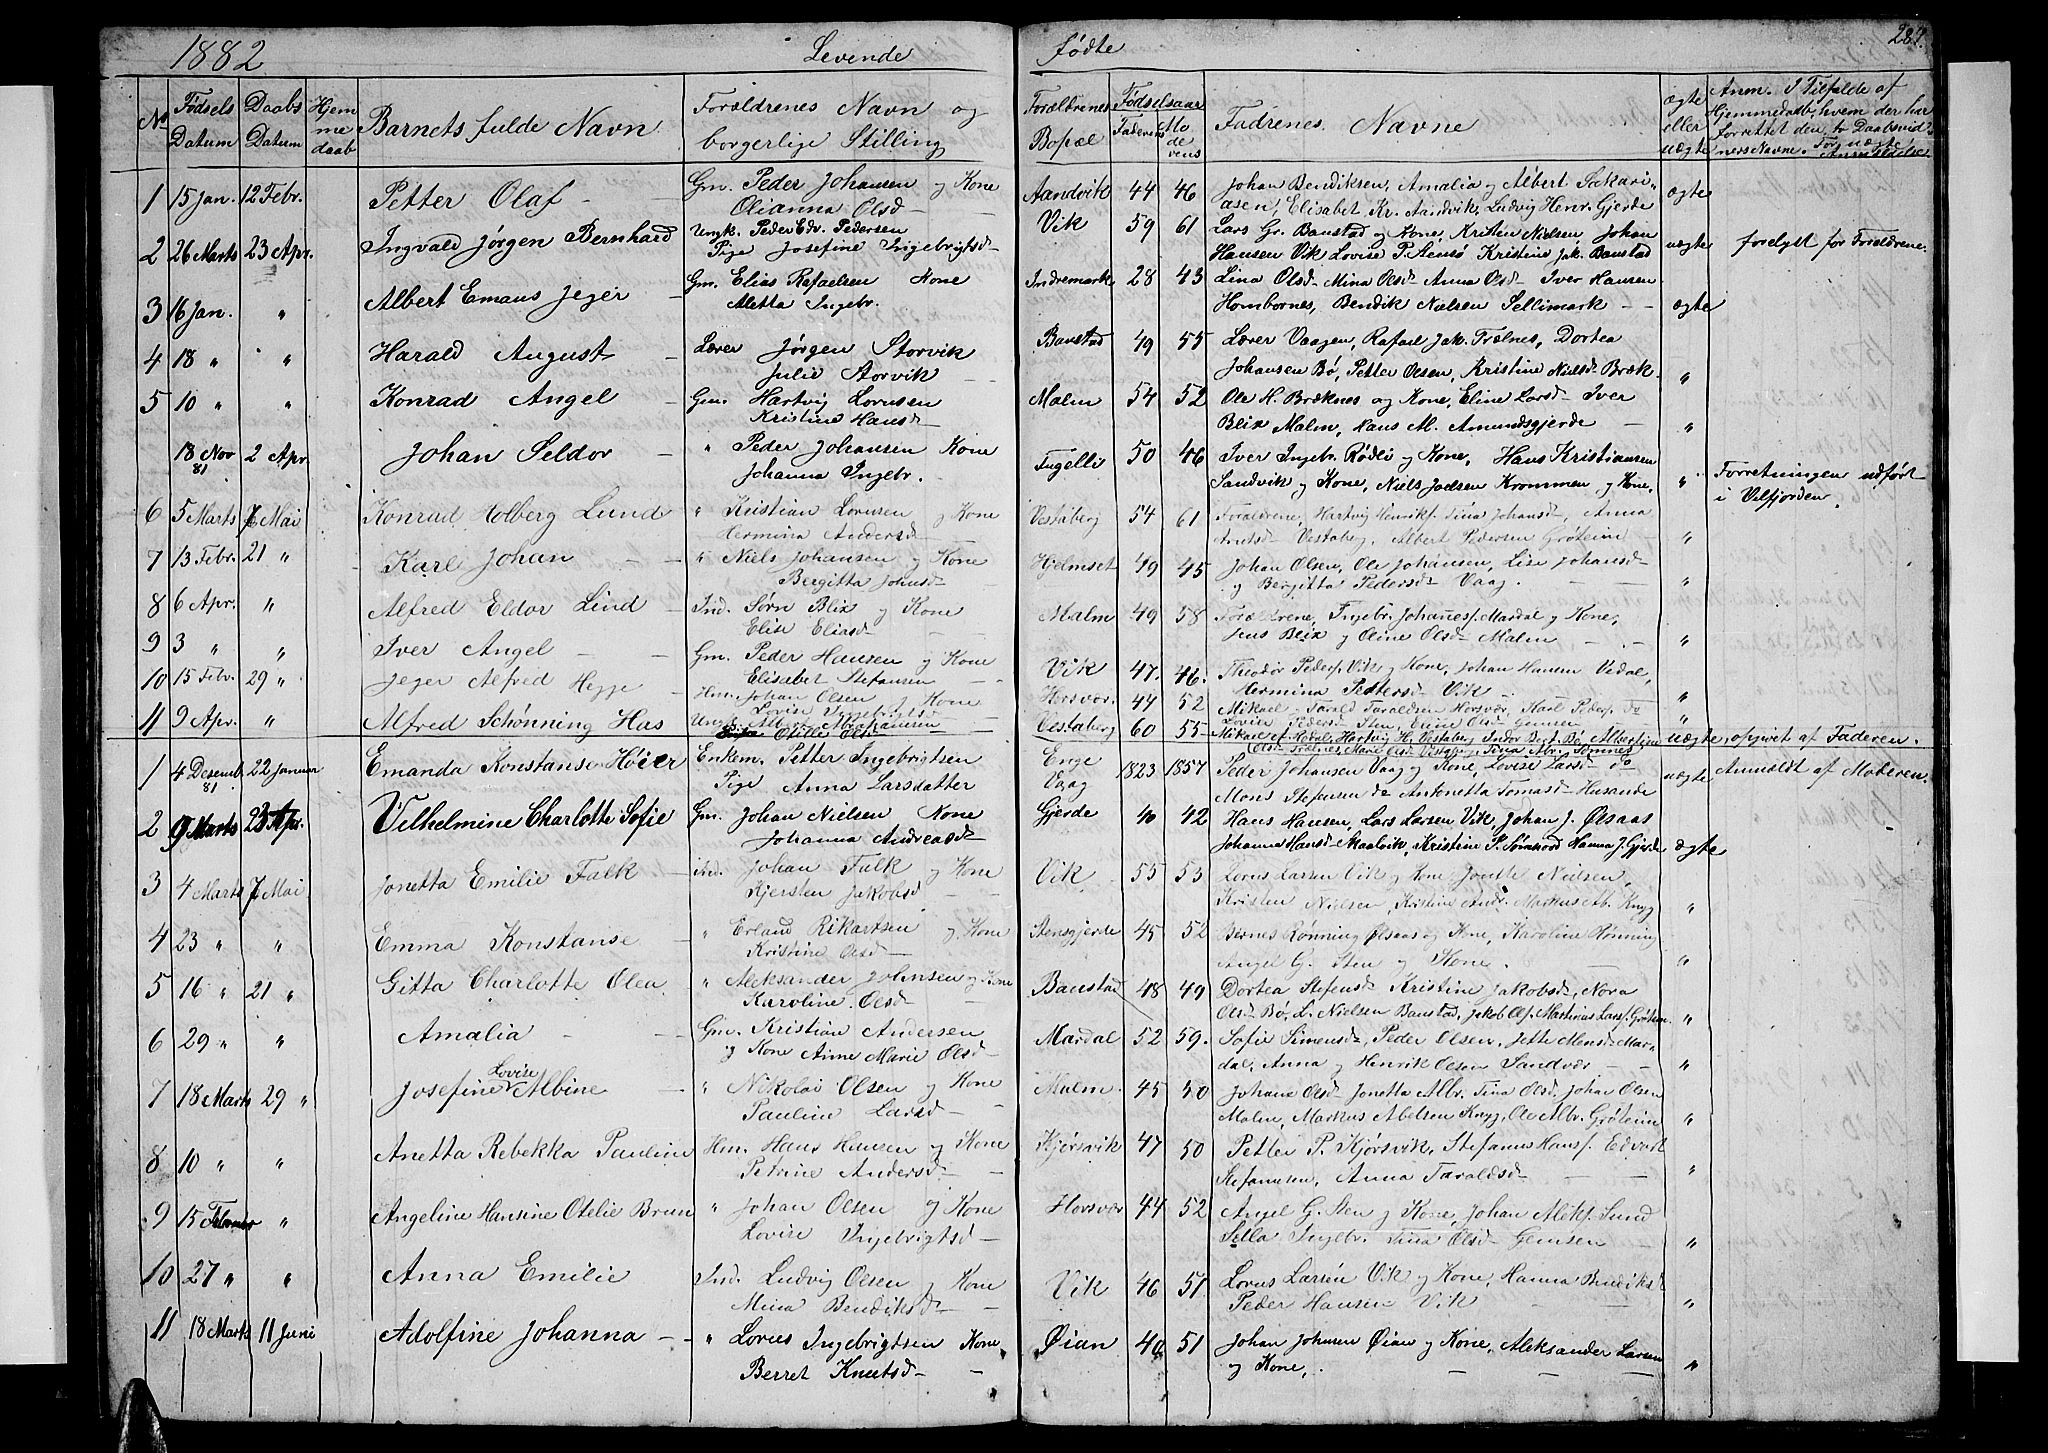 1882 Levende
Fødte 287.
No Fødsels Datum Daabs Datum Hjemmedaab Barnets fulde Navn Forældrenes Navn og borgerlige Stilling
Forældrenes Bopæl Fødselsaar Faderens Moderens Fadrenes Navne ægte eller uægte Anm. I Tilfælde af Hjemmedaab, hvem der har forrettet den, to Daabsvidners Navne. For uægte Anmeldelse
1 15 Jan. 12 Febr. Petter Olaf - Gm. Peder Johansen og Kone
Olianna Olsd -
Aandvik 44 46 Johan Bendiksen, Amalia og Albert Sakari-
asen, Elisabet Kr. Aandvik, Ludvig Henr. Gjerde ægte
2 26 Marts 23 Apr. Ingvald Jørgen Bernhard Ungk. Peder Edv. Pedersen
Pige Josefine Ingebrigtsd
Vik 59 61 Lars Gr. Baustad og Kone Kristen Nielsen Johan
Hansen Vik Lovise P. Stensø Kristine Jak. Baustad uægte forelyst for Forældrene.
3 16 Jan. " Albert Emaus Jeger - Gm. Elias Rafaelsen Kone
Aletta Ingebr.
Indremark 28 43 Lina Olsd Mina Olsd Anna Olsd Iver Hansen
Hombornes, Bendik Nielsen Sellimark - ægte
4 18 " " Harald August - Lærer Jørgen Storvik
Julie Storvik -
Baustad 49 55 Lærer Vaagen, Rafael Jak. Trælnes, Dortea
Johansen Bø, Petter Olsen, Kristine Nielsd Bræk- "
5 10 " " Konrad Angel - Gm. Hartvig Lornsen
Kristine Hansd -
Malm 54 52 Ole H. Bræknes og Kone, Eline Larsd Iver
Blix Malm, Hans M. Amundsgjerde - "
18 Nov 81 2 Apr. Johan Seldor - " Peder Johansen Kone
Johanna Ingebr.
Fugelli 50 46 Iver Ingebr. Rødli og Kone, Hans Kristiansen
Sandvik og Kone, Niels Jadsen Krommen og Kone, " Forretningen udført
i Velfjorden.
6 5 Marts 7 Mai Konrad Holberg Lund " Kristian Lornsen og Kone
Hermina Andersd -
Vestaberg 54 61 Forældrene, Hartvig Henriks. Tina Johansd, Anna
Arntsd Vestaberg, Albert Pedersen Grøteim - "
7 13 Febr. 21 " Karl Johan - " Niels Johansen og Kone
Bergitta Johnsd -
Hjelmset 49 45 Johan Olsen, Ole Johansen, Lise Johansd
og Bergitta Pedersd Vaag. - "
8 6 Apr. " Alfred Eldor Lind - Ind. Sørn Blix og Kone
Elise Eliasd -
Malm 49 58 Forældrene, Ingebr. Johannes. Mardal og Kone,
Jens Blix og Oline Olsd Malm - "
9 3 " " Iver Angel - Gm. Peder Hansen og Kone
Elisabet Stefansen -
Vik 47. 46. Theodor Peders. Vik og Kone, Johan Hansen Vedal,
Hermina Pettersd Vik - "
10 15 Febr. 29 " Jeger Alfred Hegge Hm. Johan Olsen Kone
Lovise Ingebrigtsd
Horsvær. 44 52 Mikael og Tarald Taraldsen Horsvær, Karl Peders. do
Lovise Pedersd Sten, Eline Olsd Gimsen "
11 9 Apr. " Alfred Schønning Has Ungk. Albert Abrahamsen
Otilie Olsd
Vestaberg 60 55 uægte, opgivet af Faderen.
1 4 Desemb. 81 22 Januar Emanda Konstanse Høier Enkem. Petter Ingebrigtsen
Pige Anna Larsdatter
Enge Vaag 1823 1857 Peder Johansen Vaag og Kone, Lovise Larsd do
Mons Stefensen do Antonetta Tomasd Husande uægte Anmeldt af Moderen.
2 9 Marts 23 Apr. Vilhelmine Charlotte Sofie Gm. Johan Nielsen Kone
Johanna Andreasd
Gjerde 40 42 Hans Hansen, Lars Larsen Vik, Johan J. Ølsaas
Johanna Hansd Skaalvik, Kristine P. Sømhovd Hanna J. Gjerde ægte
3 4 Marts 7 Mai Jonetta Emilie Falk - Ind. Johan Falk og Kone
Kjersten Jakobsd -
Vik 55 53 Lorns Larsen Vik og Kone Jentte Nielsen,
Kristen Nielsen, Kristine Andr. Markus Ab. Knyg "
4 23 " " Emma Konstanse - " Erland Rikartsen og Kone
Kristine Olsd -
Stensgjerde 45 52 Bernes Rønning Ølsaas og Kone, Karoline Rønning
Angel G. Sten og Kone. - "
5 16 " 21 " Gitta Charlotte Olea " Aleksander Johnsen og Kone
Karoline Olsd -
Baustad 48 49 Dortea Stefensd Kristine Jakobsd, Nora
Olsd Bø, L. Nielsen Baustad, Jakob Ols. Martinus Lars. Grøteim "
6 29 " " Amalia - Gm. Kristian Andersen
og Kone Anne Marie Olsd -
Mardal 52 59. Sofie Simensd, Peder Olsen, Jette Monsd Mar-
dal, Anna og Henrik Olsen Sandvær - "
7 18 Marts 29 " Josefine Lovise Albine - " Nikolai Olsen og Kone
Pauline Larsd -
Malm. 45 50 Johans Olsd Jonetta Albr. Tina Olsd, Johan Olsen
Malm, Markus Abelsen Knyg, Ole Albr. Grøteim "
8 10 " " Anetta Rebekka Pauline Hm. Hans Hansen og Kone
Petrine Andersd -
Kjørsvik 47 50 Petter P. Kjørsvik, Stefanus Hans. Edvart
Stefansen, Anna Taraldsd - "
9 15 Februar " Angeline Hansine Otelie Brun " Johan Olsen og Kone
Lovise Ingebrigtsd -
Horsvær 44 52 Angel G. Sten og Kone, Johan Aleks. Sund
Sella Ingebr. Tina Olsd Gimsen - "
10 27 " " Anna Emilie Ind. Ludvig Olsen og Kone
Mina Bendiksd -
Vik 46 51. Lorns Larsen Vik og Kone, Hanna Bendiksd
Peder Hansen Vik - "
11 18 Marts 11 Juni Adolfine Johanna - " Lorns Ingebrigtsen Kone
Berret Knutsd -
Øian 40 51 Johan Johnsen Øian og Kone, Aleksander Larsen
og Kone, - "